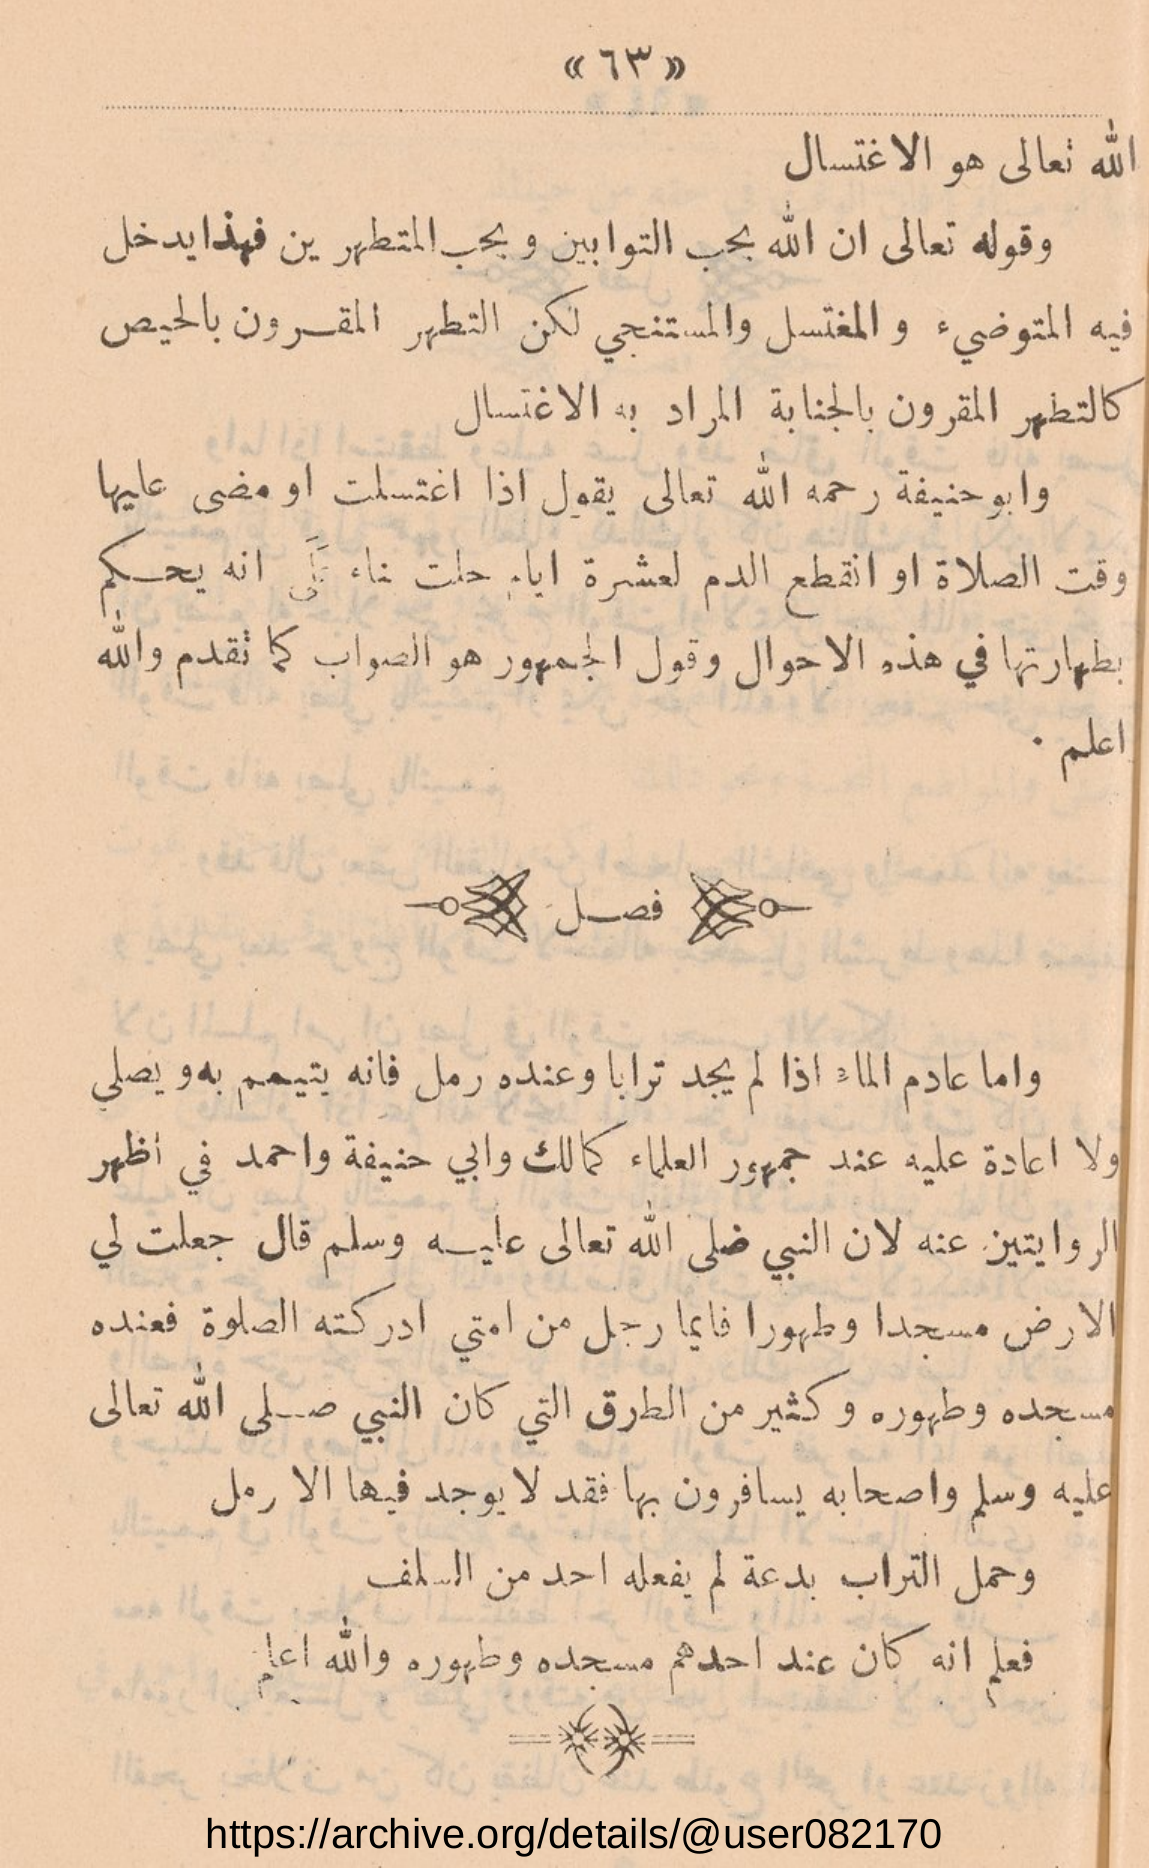 «٦٣»
الله تعالى هو الاغتسال
وقوله تعالى ان الله يحب التوابين ويحب المتطهرين فهذا يدخل
فيه المتوضيء والمغتسل والمستنجي لكن التطهر المقرون بالحيص
كالتطهر المقرون بالجنابة المراد به الاغتسال
وابو حنيفة رحمه الله تعالى يقول اذا اغتسلت او مضى عليها
وقت الصلاة او انقطع الدم لعشرة ايام حلت بناء انه يحكم
بطهارتها في هذه الاحوال وقول الجمهور هو الصواب كما تقدم والله
اعلم ٠
فصل
واما عادم الماء اذا لم يجد ترابا وعنده رمل فانه يتيمم به ويصلي
ولا اعادة عليه عند جمهور العلماء كمالك وابي حنيفة واحمد في أظهر
الروايتين عنه لان النبي ضلى الله تعالى عليه وسلم قال جعلت لي
الارض مسجدا وطهورا فايما رجل من امتي ادركته الصلوة فعنده
مسجده وطهوره وكثير من الطرق التي كان النبي صلى الله تعالى
عليه وسلم واصحابه يسافرون بها فقد لا يوجد فيها الا رمل
وحمل التراب بدعة لم يفعله احد من السلف
فعلم انه كان عند احدهم مسجده وطهوره والله اعلم
https://archive.org/details/@user082170